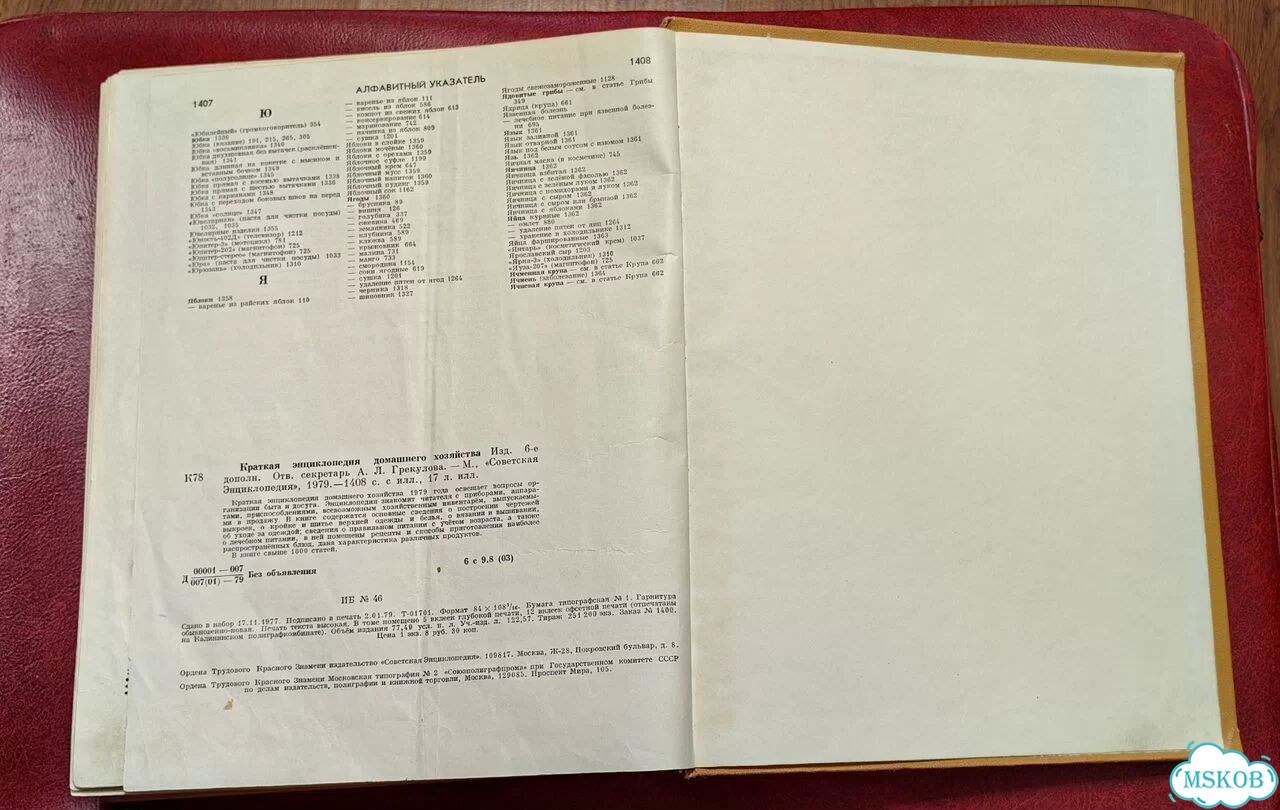 1407
АЛФАВИТНЫЙ УКАЗАТЕЛЬ
1408
Ю
«Юбилейный» (громкоговоритель) 354
Юбка 1336
Юбка (вязание) 191, 215, 265, 305
Юбка «восьмиклинка» 1340
Юбка двухшовная без вытачек (расклёшен-
ная) 1341
Юбка длинная на кокетке с мысиком и
вставным бочком 1349
Юбка «полусолнце» 1345
Юбка прямая с восемью вытачками 1338
Юбка прямая с шестью вытачками 1336
Юбка с карманами 1348
Юбка с переходом боковых швов на перед
1343
Юбка «солнце» 1347
«Ювелирная» (паста для чистки посуды)
1032, 1035
Ювелирные изделия 1355
«Юность-402Д» (телевизор) 1212
«Юпитер-3» (мотоцикл) 781
«Юпитер-202» (магнитофон) 725
«Юпитер-стерео» (магнитофон) 725
«Юра» (паста для чистки посуды) 1033
«Юрюзань» (холодильник) 1310
Я
Яблоки 1358
— варенье из райских яблок 110
— варенье из яблок 111
— кисель из яблок 586
— компот из свежих яблок 613
— консервирование 614
— маринование 742
— начинка из яблок 809
— сушка 1201
Яблоки в слойке 1359
Яблоки мочёные 1360
Яблоки с орехами 1359
Яблочное суфле 1199
Яблочный крем 647
Яблочный мусс 1359
Яблочный напиток 1360
Яблочный пудинг 1359
Яблочный сок 1162
Ягоды 1360
— брусника 89
— вишня 126
— голубика 337
— ежевика 469
— земляника 522
— клубника 589
— клюква 589
— крыжовник 664
— малина 731
— манго 733
— смородина 1154
— соки ягодные 619
— сушка 1201
— удаление пятен от ягод 1264
— черника 1318
— шиповник 1327
Ягоды свежезамороженные 1128
Ядовитые грибы — см. в статье Грибы
349
Ядрица (крупа) 661
Язвенная болезнь
— лечебное питание при язвенной болез-
ни 695
Язык 1361
Язык заливной 1361
Язык отварной 1361
Язык под белым соусом с изюмом 1361
Язь 1362
Яичная маска (в косметике) 745
Яичница 1362
Яичница взбитая 1362
Яичница с зелёной фасолью 1362
Яичница с зелёным луком 1362
Яичница с помидорами и луком 1362
Яичница с сыром 1362
Яичница с сыром или брынзой 1362
Яичница с яблоками 1362
Яйца куриные 1362
— омлет 880
— удаление пятен от яиц 1264
— хранение в холодильнике 1312
Яйца фаршированные 1363
«Янтарь» (косметический крем) 1037
Ярославский сыр 1203
«Ярка-3» (холодильник) 1310
«Яуза-207» (магнитофон) 725
Ячменная крупа — см. в статье Крупа 662
Ячмень (заболевание) 1364
Ячневая крупа — см. в статье Крупа 662
К78
Краткая энциклопедия домашнего хозяйства Изд. 6-е
дополн. Отв. секретарь А. Л. Грекулова. — М., «Советская
Энциклопедия», 1979.—1408 с. с илл., 17 л. илл.
Краткая энциклопедия домашнего хозяйства 1979 года освещает вопросы ор-
ганизации быта и досуга. Энциклопедия знакомит читателя с приборами, аппара-
тами, приспособлениями, всевозможным хозяйственным инвентарём, выпускаемы-
ми в продажу. В книге содержатся основные сведения о построении чертежей
выкроек, о кройке и шитье верхней одежды и белья, о вязании и вышивании,
об уходе за одеждой; сведения о правильном питании с учётом возраста, а также
о лечебном питании, в ней помещены рецепты и способы приготовления наиболее
распространённых блюд, дана характеристика различных продуктов.
В книге свыше 1000 статей.
Д 00001 — 007
007(01) — 79 Без объявления
6 с 9.8 (03)
ИБ № 46
Сдано в набор 17.11.1977. Подписано в печать 2.01.79. Т-01701. Формат 84 × 108¹/₁₆. Бумага типографская № 1. Гарнитура
обыкновенно-новая. Печать текста высокая. В томе помещено 5 вклеек глубокой печати, 12 вклеек офсетной печати (отпечатаны
на Калининском полиграфкомбинате). Объём издания 77,49 усл. п. л. Уч.-изд. л. 122,57. Тираж 251 200 экз. Заказ № 1400.
Цена 1 экз. 8 руб. 30 коп.
Ордена Трудового Красного Знамени издательство «Советская Энциклопедия». 109817. Москва, Ж-28, Покровский бульвар, д. 8.
Ордена Трудового Красного Знамени Московская типография № 2 «Союзполиграфпрома» при Государственном комитете СССР
по делам издательств, полиграфии и книжной торговли, Москва, 129085. Проспект Мира, 105.
MSKOB